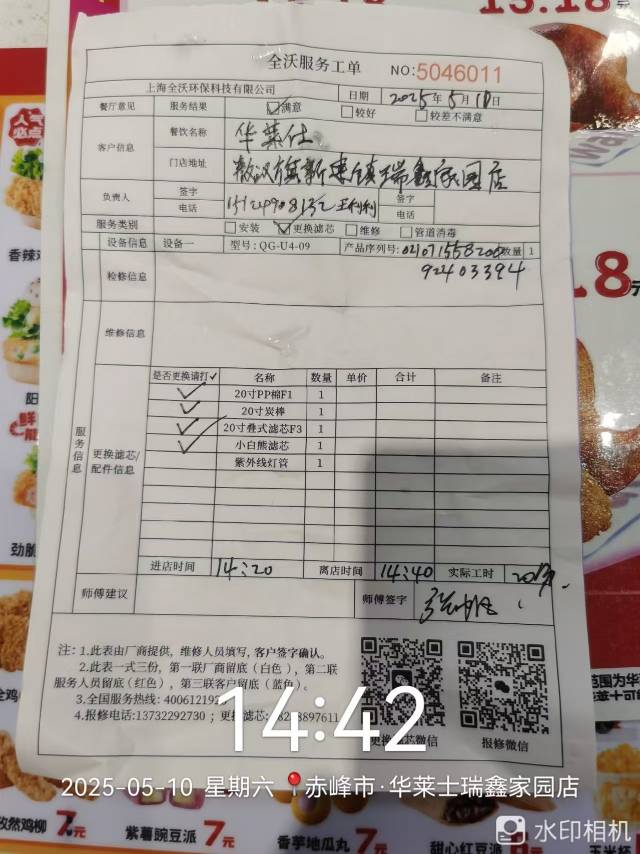 13.18元
全沃服务工单 NO:5046011
上海全沃环保科技有限公司 日期 2025年5月10日
餐厅意见 服务结果 ☑满意 □较好 □较差不满意
客户信息 餐饮名称 华莱仕
门店地址 敖汉旗新惠镇瑞鑫家园店
负责人 签字 签字
电话 王利利 电话
服务类别 □安装 ☑更换滤芯 □维修 □管道消毒
设备信息 设备一 型号:QG-U4-09 产品序列号: 数量 1
92403394
检修信息
维修信息
是否更换请打✓ 名称 数量 单价 合计 备注
✓ 20寸PP棉F1 1
✓ 20寸炭棒 1
✓ 20寸叠式滤芯F3 1
✓ 小白熊滤芯 1
紫外线灯管 1
服务信息
更换滤芯/配件信息
进店时间 14:20 离店时间 14:40 实际工时
师傅建议 师傅签字
注:1.此表由厂商提供,维修人员填写,客户签字确认。
2.此表一式三份,第一联厂商留底(白色),第二联
服务人员留底(红色),第三联客户留底(蓝色)。
3.全国服务热线:4006121
4.报修电话:13732292730;更换滤芯: 8897611
更换滤芯微信 报修微信
14:42
2025-05-10 星期六 赤峰市·华莱士瑞鑫家园店
人气必点
香辣鸡
.18元
鲜
劲脆
范围为华
全鸡
孜然鸡柳 7元 紫薯豌豆派 7元 香芋地瓜丸 7元 甜心红豆派 8元 玉米杯
水印相机